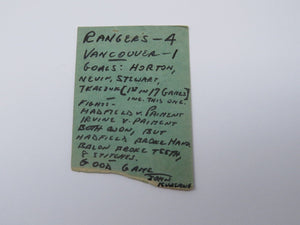 RANGERS - 4
VANCOUVER - 1
GOALS: HORTON,
NEVIN, STEWART,
TKACZUK (1ST IN 17 GAMES)
INC. THIS ONE.
FIGHTS -
HADFIELD V. PAIEMENT
IRVINE V. PAIEMENT
BOTH WON, BUT
HADFIELD BROKE HAND
BALON BROKE TEETH,
8 STITCHES.
GOOD GAME
JOHN